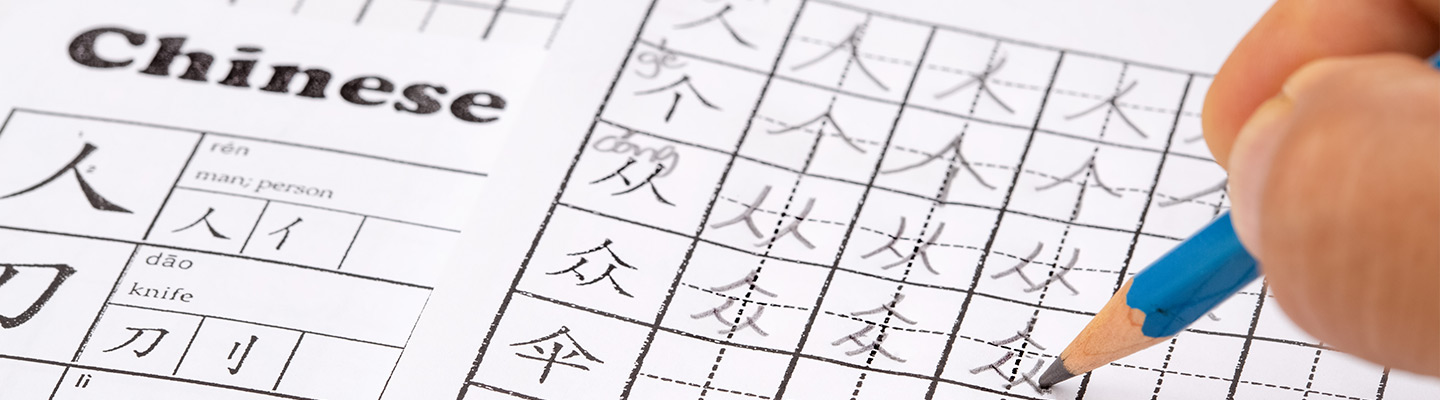 Chinese
人
rén
man; person
人 亻
刀
dāo
knife
刀 刂
lì
人 人 人 人
gè
个 个 个 个
从 从 从 从
众 众 众 众
伞